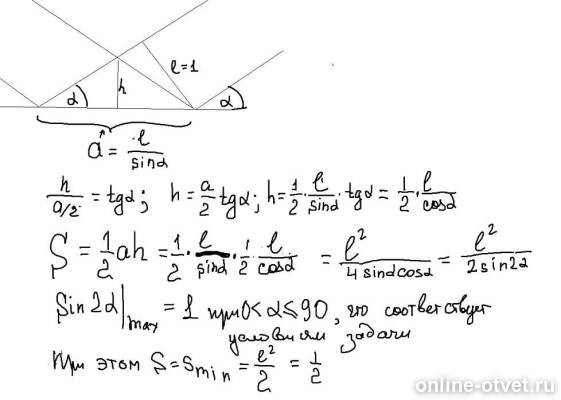 l=1
α h α
a = l/sinα
h/(a/2) = tgα; h = a/2 tgα; h = 1/2 · l/sinα · tgα = 1/2 · l/cosα
S = 1/2 ah = 1/2 · l/sinα · 1/2 · l/cosα = l²/(4sinαcosα) = l²/(2sin2α)
Sin2α|max = 1 при 0<α≤90, что соответствует
условиям задачи
При этом S = Smin = l²/2 = 1/2
online-otvet.ru